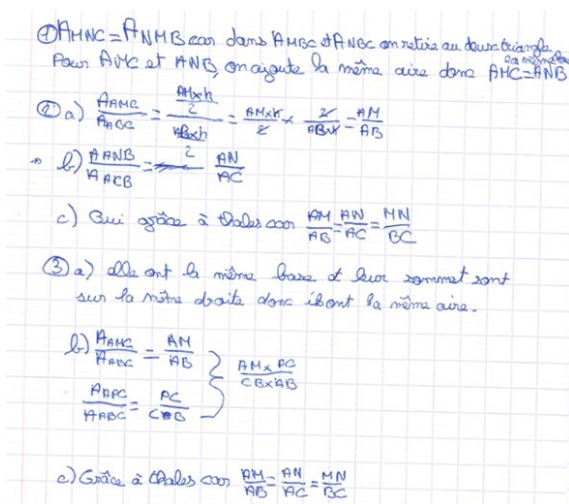 ① A MNC = A NMB car dans A MBC et A NBC on retire au deux triangle la même
Pour AMC et ANB, on ajoute la même aire donc AMC = ANB
② a) A AMC / A ABC = (AM×h / 2) / (AB×h / 2) = AM×h / 2 × 2 / AB×h = AM / AB
b) A ANB / A ACB = AN / AC
c) Oui grâce à thales car AM/AB = AN/AC = MN/BC
③ a) elle ont la même base et leur sommet sont
sur la même droite donc ils ont la même aire.
b) A AMC / A ABC = AM / AB } AM × PC / CB × AB
PC / CB
c) Grâce à thales car AM/AB = AN/AC = MN/BC